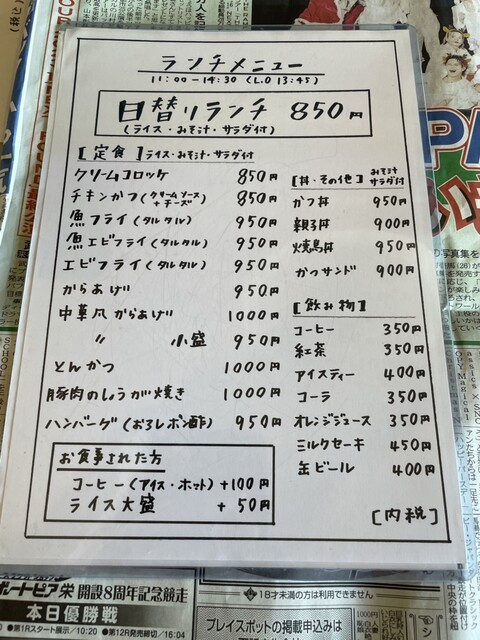 ランチメニュー
11:00-14:30 (L.O 13:45)
日替りランチ 850円
(ライス・みそ汁・サラダ付)
[定食] ライス・みそ汁・サラダ付
クリームコロッケ 850円
チキンかつ(クリームソース+チーズ) 850円
魚フライ(タルタル) 950円
魚エビフライ(タルタル) 950円
エビフライ(タルタル) 950円
からあげ 950円
中華風からあげ 1000円
〃 小盛 950円
とんかつ 1000円
豚肉のしょうが焼き 1000円
ハンバーグ(おろしポン酢) 950円
お食事された方
コーヒー(アイス・ホット) +100円
ライス大盛 +50円
[丼・その他] みそ汁サラダ付
かつ丼 950円
親子丼 900円
焼鳥丼 950円
かつサンド 900円
[飲み物]
コーヒー 350円
紅茶 350円
アイスティー 400円
コーラ 350円
オレンジジュース 350円
ミルクセーキ 450円
缶ビール 400円
[内税]
ボートピア栄 開設8周年記念競走
本日優勝戦
第1Rスタート展示/10:20 ●第12R発売締切/16:04
18才未満の方は利用できません
プレイスポットの掲載申込は